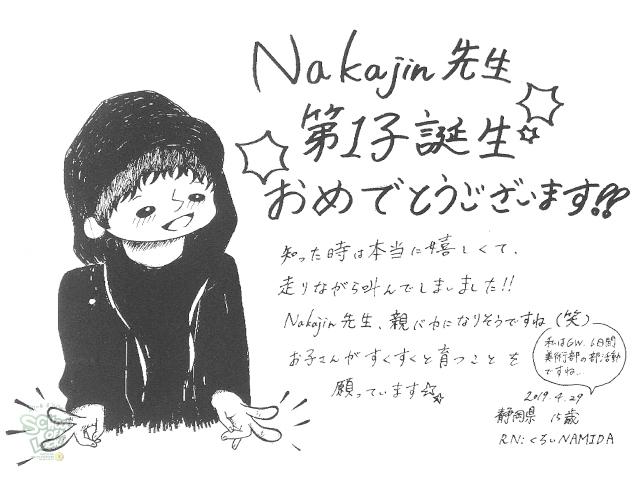 Nakajin先生
第1子誕生
おめでとうございます!!
知った時は本当に嬉しくて、
走りながら叫んでしまいました!!
Nakajin先生、親バカになりそうですね(笑)
お子さんがすくすくと育つことを
願っています
私はGW、6日間
美術部の部活動
ですね…
2019.4.29
静岡県 15歳
RN:くろいNAMIDA